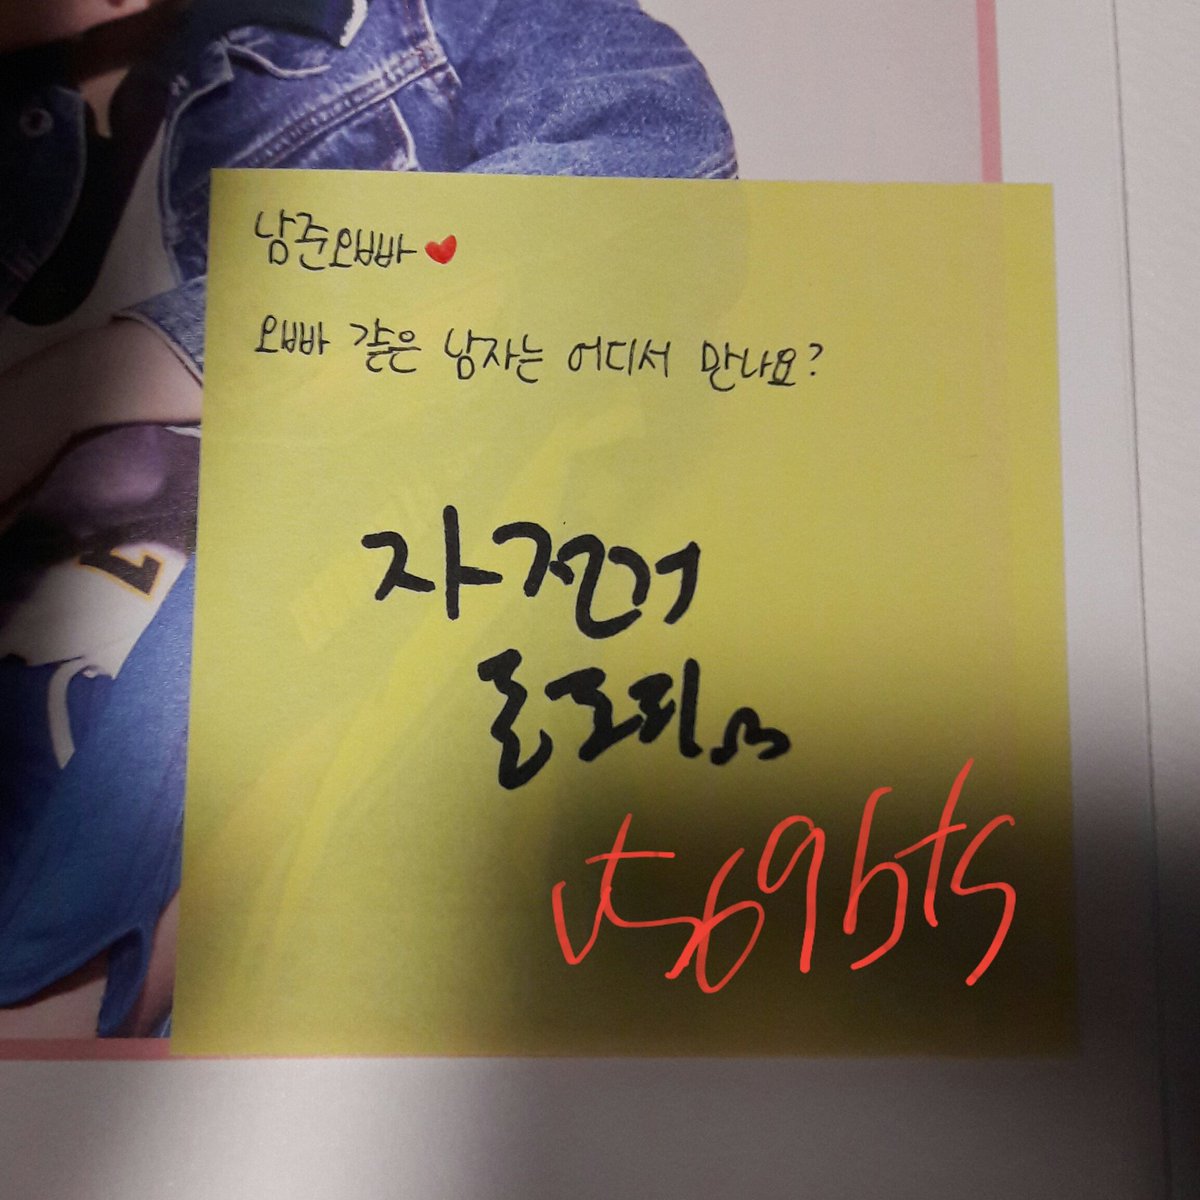 남준오빠♥
오빠 같은 남자는 어디서 만나요?
자전거
동호회
vt569bts
7